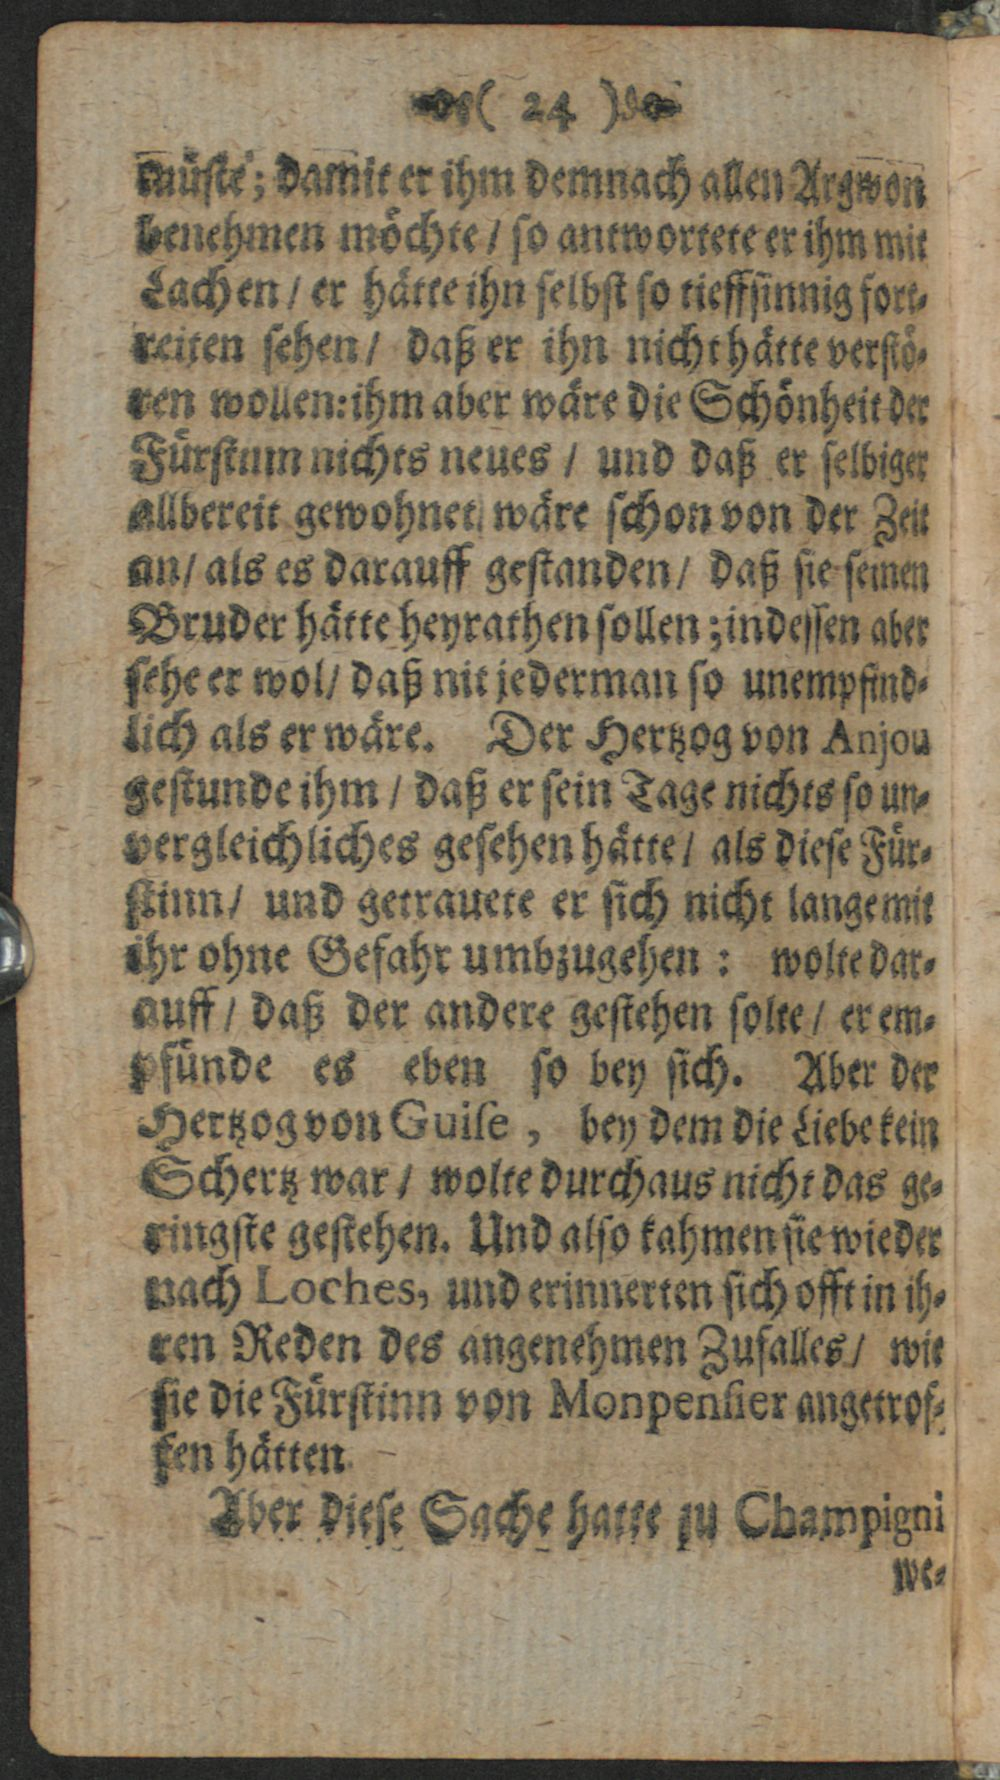 ( 24 )
müste; damit er ihm demnach allen Argwon
benehmen möchte / so antwortete er ihm mit
Lachen / er hätte ihn selbst so tieffsinnig fort-
reiten sehen / daß er ihn nicht hätte verstö-
ren wollen: ihm aber wäre die Schönheit der
Fürstinn nichts neues / und daß er selbiger
allbereit gewohnet wäre schon von der Zeit
an / als es darauff gestanden / daß sie seinen
Bruder hätte heyrathen sollen; indessen aber
sehe er wol / daß nit jederman so unempfind-
lich als er wäre. Der Hertzog von Anjou
gestunde ihm / daß er sein Tage nichts so un-
vergleichliches gesehen hätte / als diese Für-
stinn / und getrauete er sich nicht lange mit
ihr ohne Gefahr umbzugehen: wolte dar-
auff / daß der andere gestehen solte / er em-
pfünde es eben so bey sich. Aber der
Hertzog von Guise, bey dem die Liebe kein
Schertz war / wolte durchaus nicht das ge-
ringste gestehen. Und also kahmen sie wieder
nach Loches, und erinnerten sich offt in ih-
ren Reden des angenehmen Zufalles / wie
sie die Fürstinn von Monpensier angetrof-
fen hätten.
Aber diese Sache hatte zu Champigni
we-